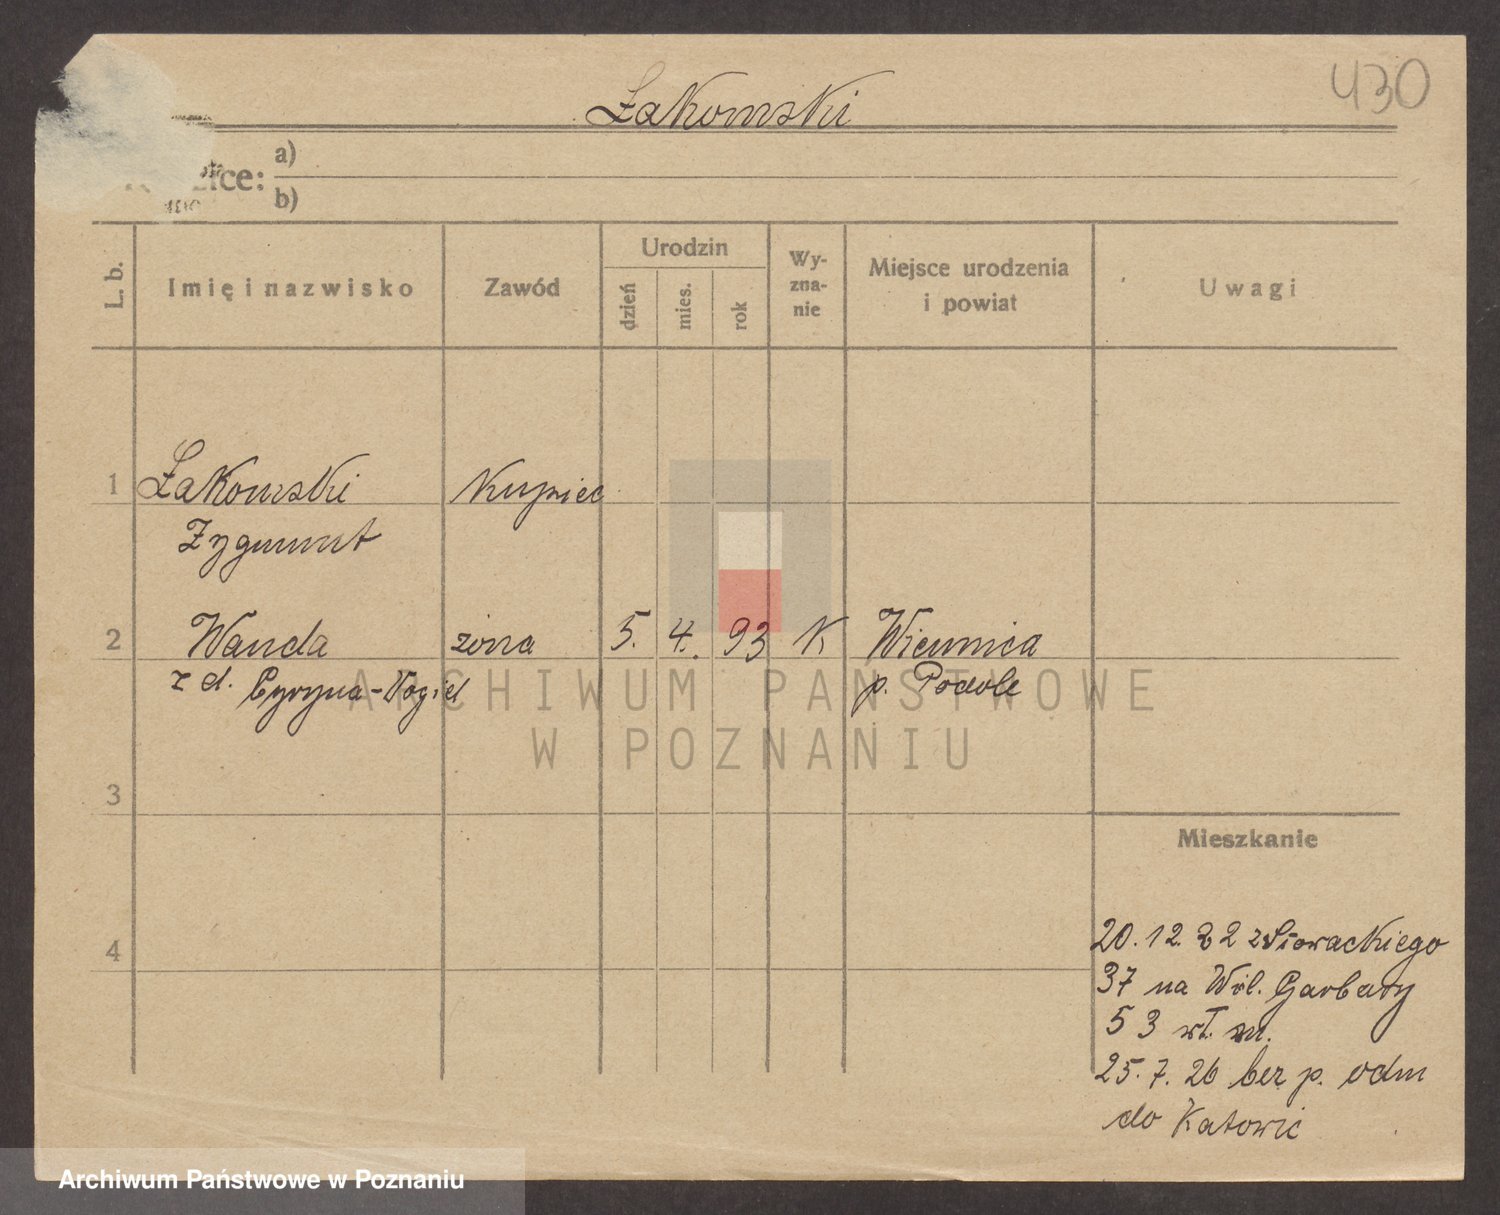 430
Łakomski
a)
b)
L. b.
Imię i nazwisko
Zawód
Urodzin
dzień
mies.
rok
Wy-
zna-
nie
Miejsce urodzenia
i powiat
Uwagi
1 Łakomski Kupiec
Zygmunt
2 Wanda żona 5. 4. 93 K
z d.
p. Podole
3
Mieszkanie
4
20. 12. 22 z Słowackiego
37 na Wiel. Garbary
53 wł. m.
25. 7. 26 bez p. odm
do Katowic
ARCHIWUM PAŃSTWOWE
W POZNANIU
Archiwum Państwowe w Poznaniu